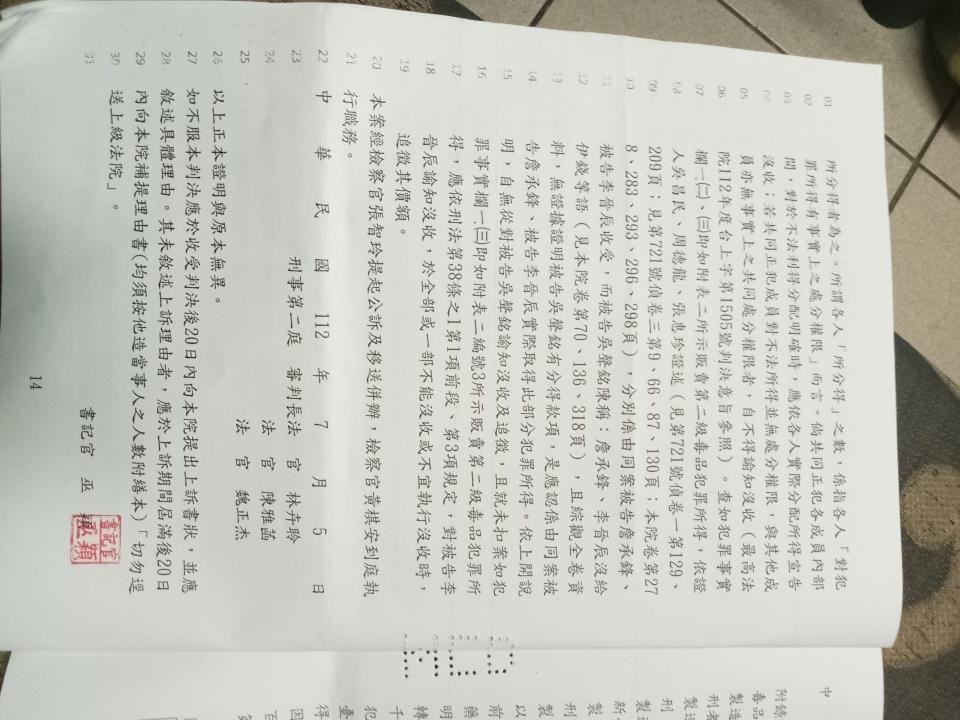 01 所分得者為之。所謂各人「所分得」之數，係指各人「對犯
02 罪所得有事實上之處分權限」而言。倘共同正犯各成員內部
03 間，對於不法利得分配明確時，應依各人實際分配所得宣告
04 沒收；若共同正犯成員對不法所得並無處分權限，與其他成
05 員亦無事實上之共同處分權限者，自不得諭知沒收（最高法
06 院112年度台上字第1505號判決意旨參照）。查如犯罪事實
07 欄一㈡、㈢即如附表二所示販賣第二級毒品犯罪所得，依證
08 人吳昌民、周德龍、張惠珍證述（見第721號偵卷一第129、
09 209頁；見第721號偵卷三第9、66、87、130頁；本院卷第27
10 8、283、293、296、298頁），分別係由同案被告詹承鋒、
11 被告李晉辰收受，而被告吳聲銘陳稱：詹承鋒、李晉辰沒給
12 伊錢等語（見本院卷第70、136、318頁），且綜觀全卷資
13 料，無證據證明被告吳聲銘有分得款項，是應認係由同案被
14 告詹承鋒、被告李晉辰實際取得此部分犯罪所得。依上開說
15 明，自無從對被告吳聲銘諭知沒收及追徵，且就未扣案如犯
16 罪事實欄一㈢即如附表二編號3所示販賣第二級毒品犯罪所
17 得，應依刑法第38條之1第1項前段、第3項規定，對被告李
18 晉辰諭知沒收，於全部或一部不能沒收或不宜執行沒收時，
19 追徵其價額。
20 本案經檢察官張智玲提起公訴及移送併辦，檢察官黃棋安到庭執
21 行職務。
22 中 華 民 國 112 年 7 月 5 日
23 刑事第二庭 審判長法 官 林卉聆
24 法 官 陳雅菡
25 法 官 魏正杰
26 以上正本證明與原本無異。
27 如不服本判決應於收受判決後20日內向本院提出上訴書狀，並應
28 敘述具體理由。其未敘述上訴理由者，應於上訴期間屆滿後20日
29 內向本院補提理由書（均須按他造當事人之人數附繕本）「切勿逕
30 送上級法院」。
31 書記官 巫 穎
書記官
14
中
附錄
毒品
製造
刑者
製造
刑
製造